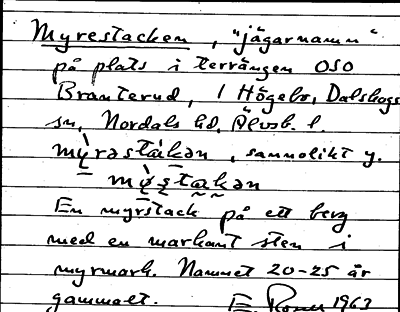 Myrestacken, "jägarnamn"
på plats i terrängen OSO
Branterud, 1 Högebo, Dalskogs
sn, Nordals hd, Älvsb. l.
mỳrəstàkən, sannolikt y.
mỳs̱takən
En myrstack på ett berg
med en markant sten i
myrmark. Namnet 20-25 år
gammalt. E. 1963